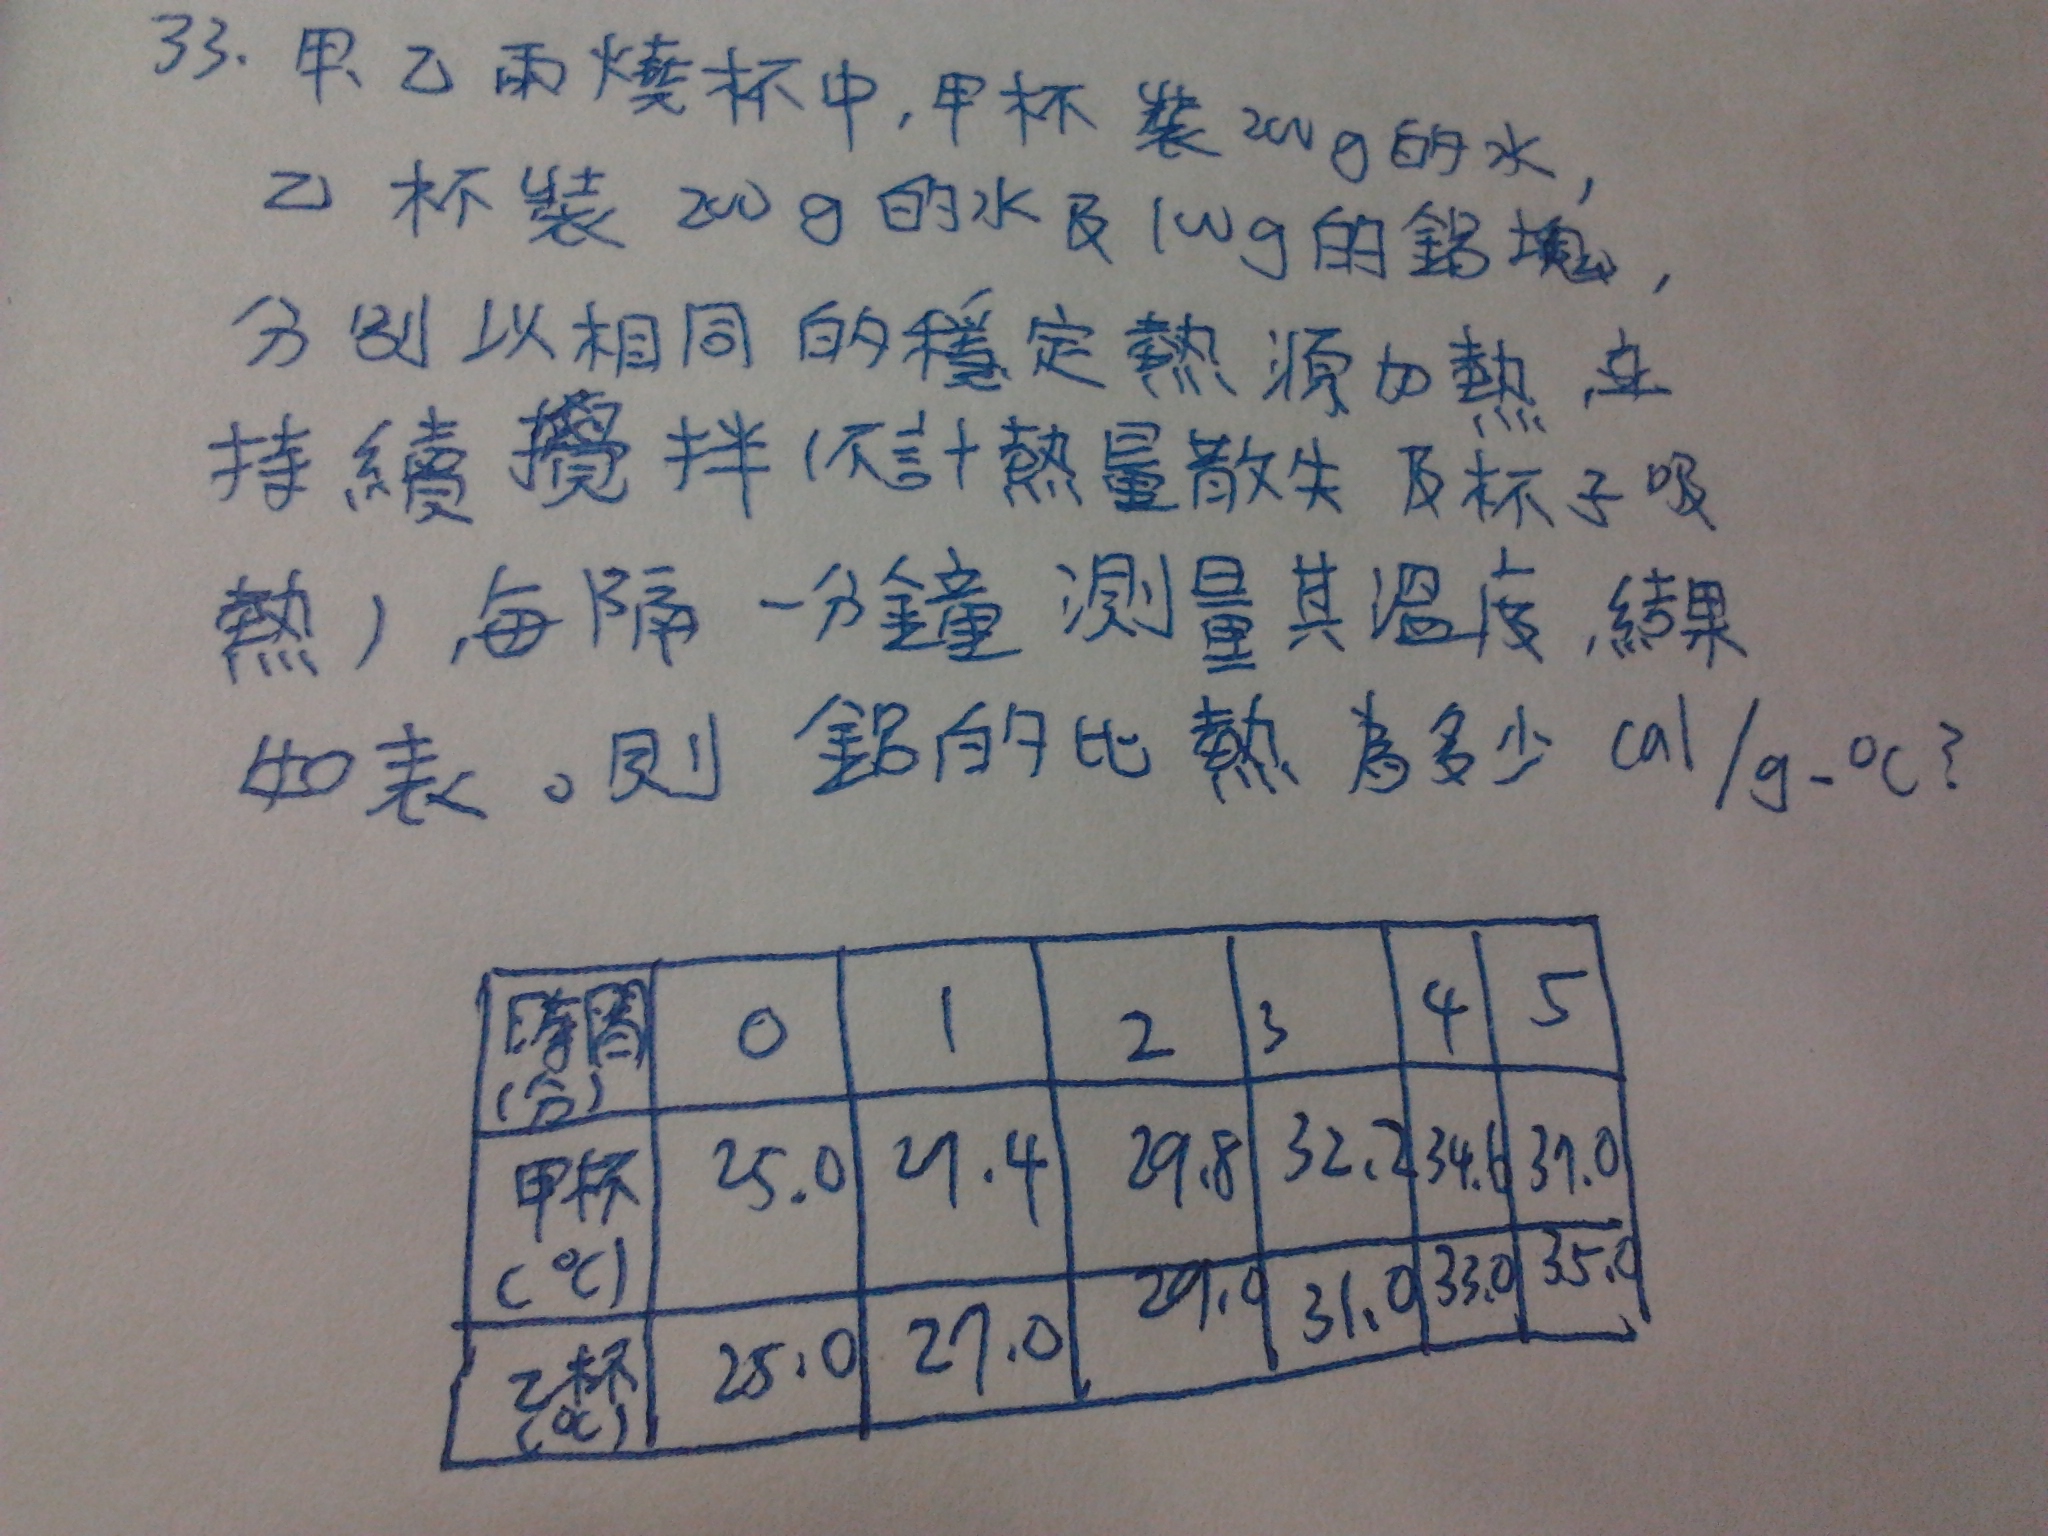 33. 甲、乙兩燒杯中,甲杯裝200g的水,
乙杯裝200g的水及100g的鋁塊,
分別以相同的穩定熱源加熱並
持續攪拌(不計熱量散失及杯子吸
熱),每隔一分鐘測量其溫度,結果
如表。則鋁的比熱為多少cal/g-°C?
時間(分) 0 1 2 3 4 5
甲杯(°C) 25.0 27.4 29.8 32.2 34.6 37.0
乙杯(°C) 25.0 27.0 29.0 31.0 33.0 35.0